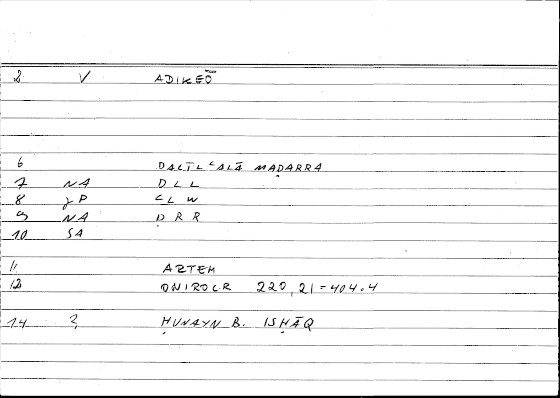 2 V ADIKEŌ
6 DALĪL ʿALĀ MAḌARRA
7 NA DLL
8 γP ʿLW
9 NA ḌRR
10 SA
11 ARTEM
12 ONIROCR 220,21=404.4
14 3 ḤUNAYN B. ISḤĀQ